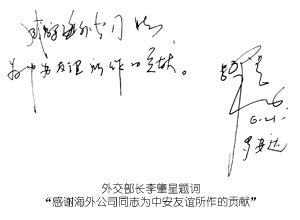 感谢海外公司同志
为中安友谊所作的贡献。
6.21.
罗安达
外交部长李肇星题词
“感谢海外公司同志为中安友谊所作的贡献”